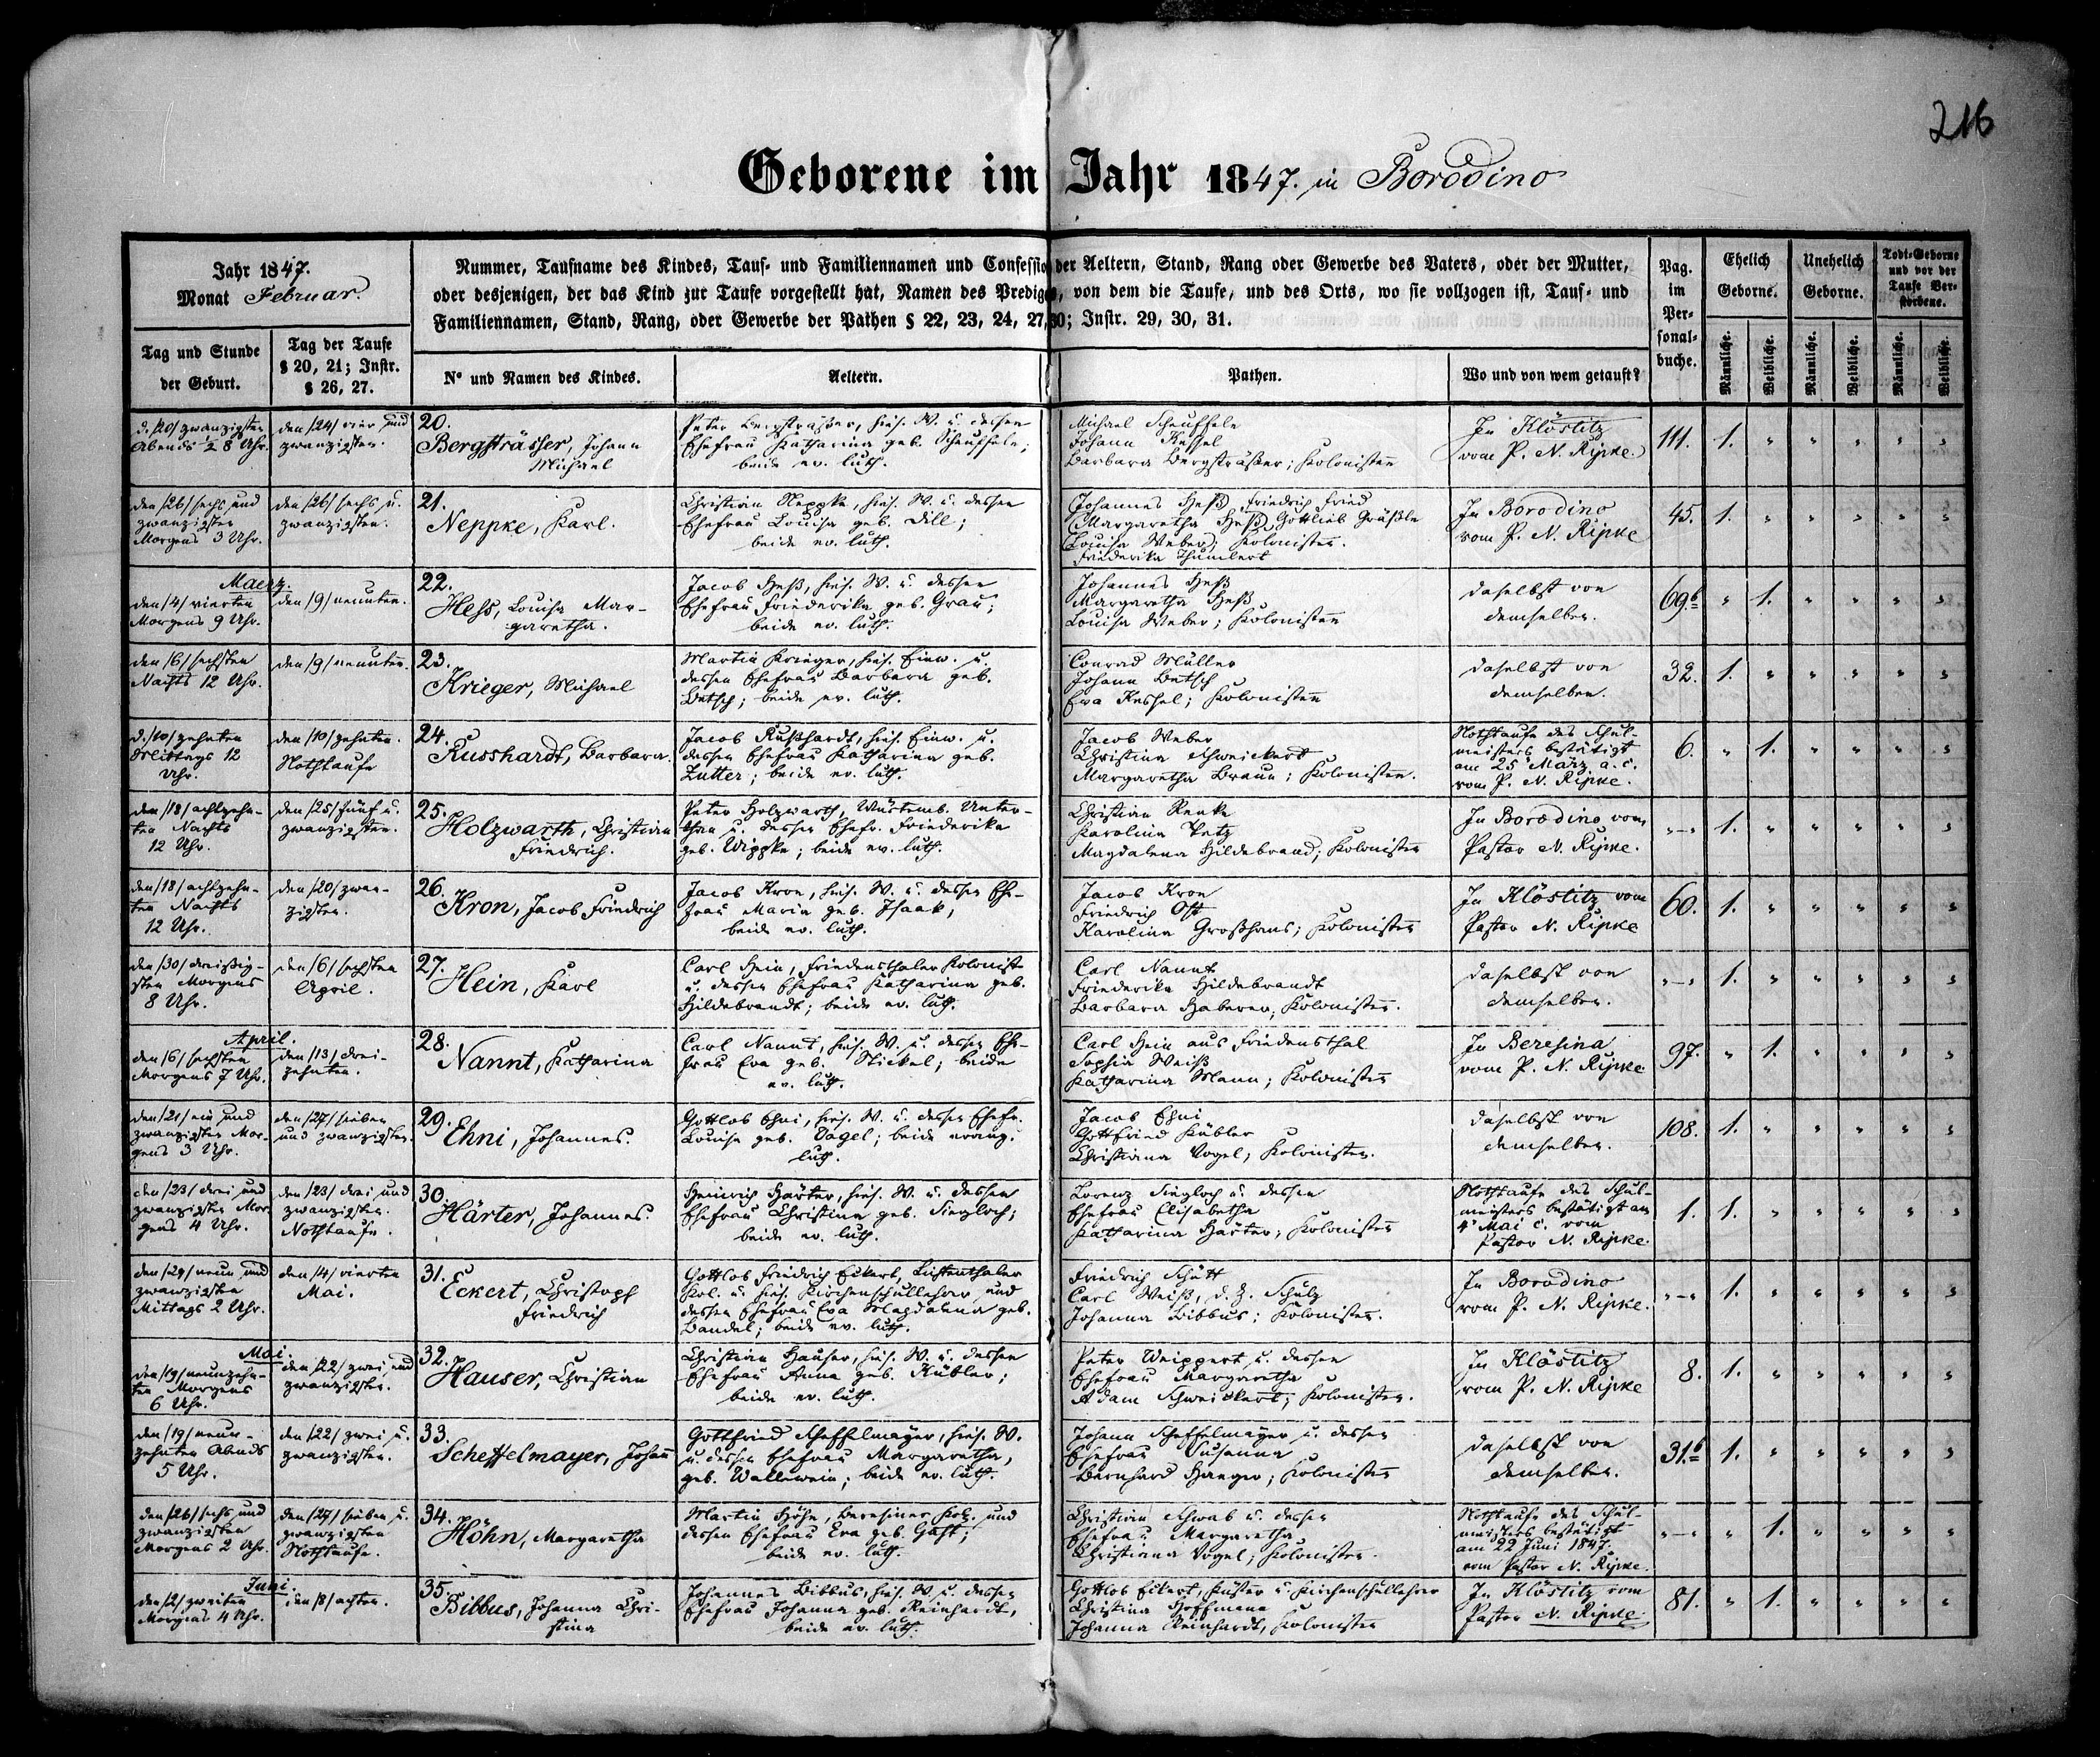 216
Geborene im Jahr 1847. in Borodino
Jahr 1847.
Monat Februar.
Tag und Stunde
der Geburt.
Tag der Taufe
§ 20, 21; Instr.
§ 26, 27.
Nummer, Taufname des Kindes, Tauf- und Familiennamen und Confession der Aeltern, Stand, Rang oder Gewerbe des Vaters, oder der Mutter,
oder desjenigen, der das Kind zur Taufe vorgestellt hat, Namen des Predigers, von dem die Taufe, und des Orts, wo sie vollzogen ist, Tauf- und
Familiennamen, Stand, Rang, oder Gewerbe der Pathen § 22, 23, 24, 27, 30; Instr. 29, 30, 31.
No und Namen des Kindes.
Aeltern.
Pathen.
Wo und von wem getauft?
Pag.
im
Per-
sonal-
buche.
Ehelich
Geborne.
Unehelich
Geborne.
Todt-Geborne
und vor der
Taufe Ver-
storbene.
Männliche.
Weibliche.
Männliche.
Weibliche.
Männliche.
Weibliche.
d. /20/ zwanzigsten
Abends ½ 8 Uhr.
den /24/ vier und
zwanzigsten.
20.
Bergsträsser, Johann
Michael
Peter Bergsträßer, hies. W. u. dessen
Ehefrau Katharina geb. Scheuffele;
beide ev. luth.
Michael Scheuffele
Johann Kessel
Barbara Bergsträßer; Kolonisten
In Klöstitz
vom P. N. Ripke.
111. 1. " " " " "
den /26/ sechs und
zwanzigsten
Morgens 3 Uhr.
den /26/ sechs u.
zwanzigsten.
21.
Neppke, Karl.
Christian Neppke, hies. W. u. dessen
Ehefrau Louisa geb. Dill;
beide ev. luth.
Johannes Heß, Friedrich Fried
Margaretha Heß, Gottlieb Gräßle
Louisa Weber; Kolonisten.
Friederika Thumlert
In Borodino
vom P. N. Ripke
45. 1. " " " " "
Maerz.
den /4/ vierten
Morgens 9 Uhr.
den /9/ neunten.
22.
Hess, Louisa Mar-
garetha.
Jacob Heß, hies. W. u. dessen
Ehefrau Friederika geb. Grau;
beide ev. luth.
Johannes Heß
Margaretha Heß
Louisa Weber; Kolonisten
daselbst von
demselben.
69b " 1. " " " "
den /6/ sechsten
Nachts 12 Uhr.
den /9/ neunten.
23.
Krieger, Michael
Martin Krieger, hies. Einw. u.
dessen Ehefrau Barbara geb.
Betsch; beide ev. luth.
Conrad Müller
Johann Betsch
Eva Kessel; Kolonisten
daselbst von
demselben.
32. 1. " " " " "
d. /10/ zehnten
Mittags 12
Uhr.
den /10/ zehnten.
Nothtaufe
24.
Russhardt, Barbara.
Jacob Rußhardt, hies. Einw. u.
dessen Ehefrau Katharina geb.
Zutter; beide ev. luth.
Jacob Weber
Christina Schweickert
Margaretha Braun; Kolonisten.
Nothtaufe des Schul-
meisters bestätigt
am 25 März a. c.
vom P. N. Ripke.
6. " 1. " " " "
den /18/ achtzehn-
ten Nachts
12 Uhr.
den /25/ fünf u.
zwanzigsten.
25.
Holzwarth, Christian
Friedrich.
Peter Holzwarth, Würtemb. Unter-
than u. dessen Ehefr. Friederika
geb. Wippke; beide ev. luth.
Christian Renke
Karolina Petz
Magdalena Hildebrand; Kolonisten
In Borodino vom
Pastor N. Ripke.
"—" 1. " " " " "
den /18/ achtzehn-
ten Nachts
12 Uhr.
den /20/ zwan-
zigsten.
26.
Kron, Jacob Friedrich
Jacob Kron, hies. W. u. dessen Ehe-
frau Maria geb. Isaak,
beide ev. luth.
Jacob Kron
Friedrich Ost
Karolina Großhans; Kolonisten
In Klöstitz vom
Pastor N. Ripke
60. 1. " " " " "
den /30/ dreißig-
sten Morgens
8 Uhr.
den /6/ sechsten
April.
27.
Hein, Karl
Carl Hein, Friedensthaler Kolonist
u. dessen Ehefrau Katharina geb.
Hildebrandt; beide ev. luth.
Carl Nannt
Friederika Hildebrandt
Barbara Haberer, Kolonisten.
daselbst von
demselben.
"—" 1. " " " " "
April.
den /6/ sechsten
Morgens 7 Uhr.
den /13/ drei-
zehnten.
28.
Nannt, Katharina
Carl Nannt, hies. W. u. dessen Ehe-
frau Eva geb. Stickel; beide
ev. luth.
Carl Hein aus Friedensthal
Sophia Weiß
Katharina Mann; Kolonisten
In Beresina
vom P. N. Ripke.
97. " 1. " " " "
den /21/ ein und
zwanzigsten Mor-
gens 3 Uhr.
den /27/ sieben
und zwanzigsten.
29.
Ehni, Johannes.
Gottlob Ehni, hies. W. u. dessen Ehefr.
Louisa geb. Vogel; beide evang.
luth.
Jacob Ehni
Gottfried Kübler
Christiana Vogel, Kolonisten.
daselbst von
demselben.
108. 1. " " " " "
den /23/ drei und
zwanzigsten Mor-
gens 4 Uhr.
den /23/ drei und
zwanzigsten.
Nothtaufe.
30.
Härter, Johannes.
Heinrich Härter, hies. W. u. dessen
Ehefrau Christina geb. Siegloch;
beide ev. luth.
Lorenz Siegloch u. dessen
Ehefrau Elisabetha
Katharina Härter, Kolonisten
Nothtaufe des Schul-
meisters bestätigt am
4 Mai c. vom
Pastor N. Ripke.
1. 1. " " " " "
den /29/ neun und
zwanzigsten
Mittags 2 Uhr.
den /4/ vierten
Mai.
31.
Eckert, Christoph
Friedrich
Gottlob Friedrich Eckert, Lichtenthaler
Kol. u. hies. Kirchenschullehrer, und
dessen Ehefrau Eva Magdalena geb.
Bandel; beide ev. luth.
Friedrich Schütt
Carl Weiß, d. Z. Schulz
Johanna Bibbus; Kolonisten.
In Borodino
vom P. N. Ripke.
"—" 1. " " " " "
Mai.
den /19/ neunzehn-
ten Morgens
6 Uhr.
den /22/ zwei und
zwanzigsten.
32.
Hauser, Christian
Christian Hauser, hies. W. u. dessen
Ehefrau Anna geb. Kübler;
beide ev. luth.
Peter Weippert u. dessen
Ehefrau Margaretha
Adam Schweickert; Kolonisten.
In Klöstitz
vom P. N. Ripke
8. 1. " " " " "
den /19/ neun-
zehnten Abends
5 Uhr.
den /22/ zwei u.
zwanzigsten.
33.
Scheffelmayer, Johann
Gottfried Scheffelmayer, hies. W.
u. dessen Ehefrau Margaretha,
geb. Wallewein; beide ev. luth.
Johann Scheffelmayer u. dessen
Ehefrau Susanna
Bernhard Haager; Kolonisten
daselbst von
demselben.
31.b 1. " " " " "
den /26/ sechs und
zwanzigsten
Morgens 2 Uhr.
den /27/ sieben u.
zwanzigsten
Nothtaufe.
34.
Höhn, Margaretha
Martin Höhn, Beresiner Kol. und
dessen Ehefrau Eva geb. Gast;
beide ev. luth.
Christian Schwab u. dessen
Ehefrau Margaretha
Christiana Vogel; Kolonisten.
Nothtaufe des Schul-
meisters bestätigt
am 22 Juni 1847.
vom Pastor N. Ripke.
"—" " 1. " " " "
Juni.
den /2/ zweiten
Morgens 4 Uhr.
den /8/ achten.
35.
Bibbus, Johanna Chri-
stina
Johannes Bibbus, hies. W. u. dessen
Ehefrau Johanna geb. Reinhardt,
beide ev. luth.
Gottlob Eckert, Küster u. Kirchenschullehrer
Christina Hoffmann
Johanna Reinhardt, Kolonisten
In Klöstitz vom
Pastor N. Ripke.
81. " 1. " " " "